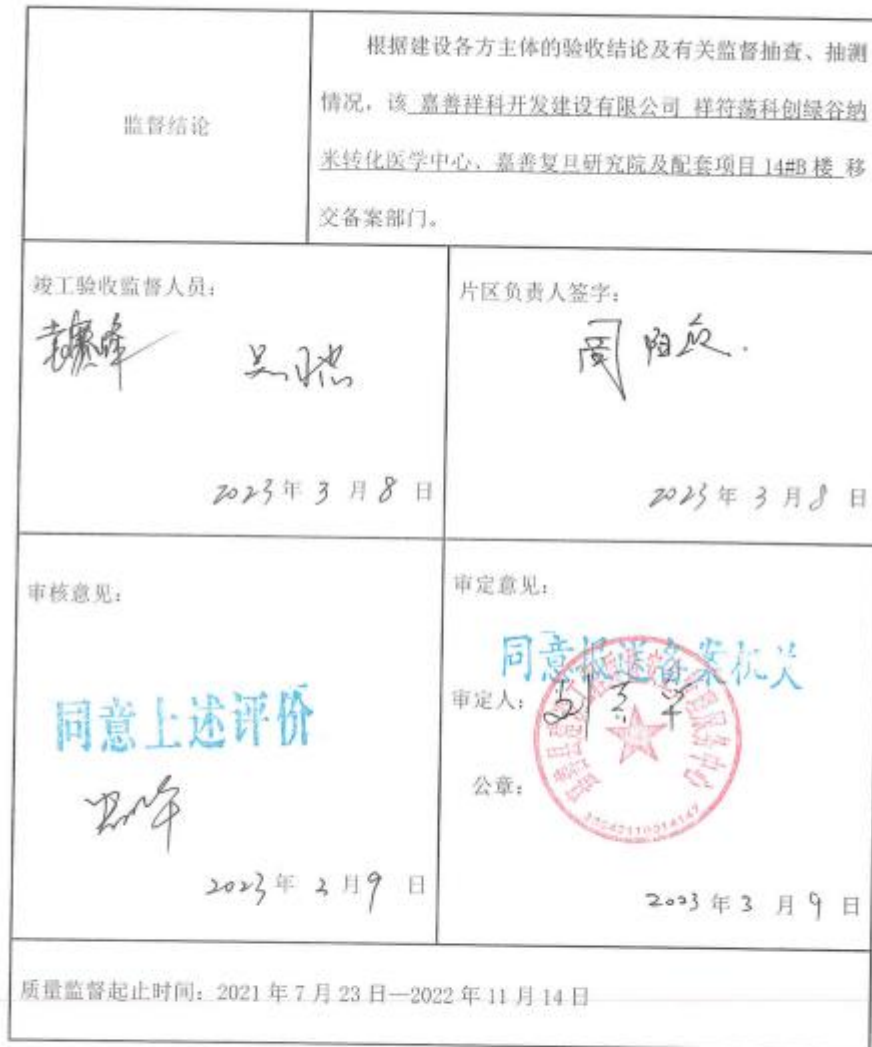 监督结论
根据建设各方主体的验收结论及有关监督抽查、抽测
情况,该 嘉善祥科开发建设有限公司 祥符荡科创绿谷纳
米转化医学中心、嘉善复旦研究院及配套项目 14#B 楼 移
交备案部门。
竣工验收监督人员:
2023 年 3 月 8 日
片区负责人签字:
2023 年 3 月 8 日
审核意见:
同意上述评价
2023 年 3 月 9 日
审定意见:
同意报送备案机关
审定人:
公章:
2023 年 3 月 9 日
质量监督起止时间:2021 年 7 月 23 日—2022 年 11 月 14 日